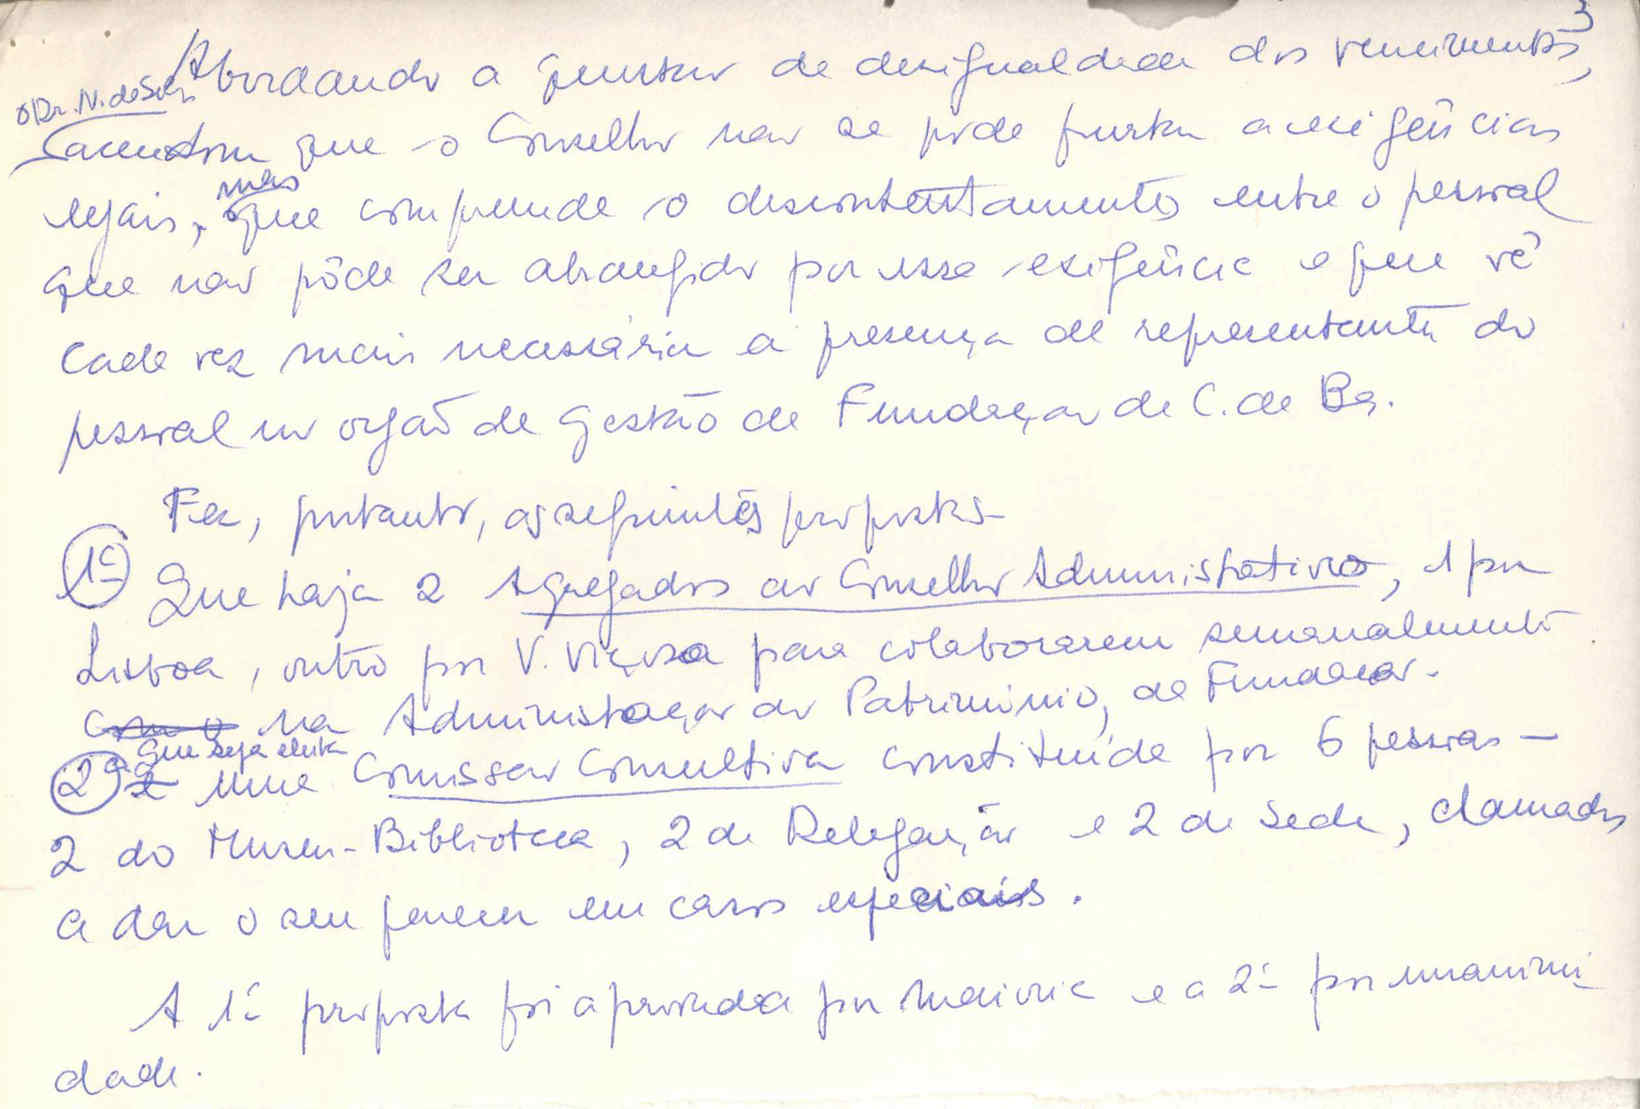 3
Abordando a questão da desigualdade dos vencimentos,
o Dr. N. de
acentou que o Conselho não se pode furtar a exigências
legais, mas que compreende o descontentamento entre o pessoal
que não pôde ser abrangido por essa exigência e que vê
cada vez mais necessária a presença de representante do
pessoal no orgão de gestão da Fundação da C. de Bg.
Fez, portanto, as seguintes propostas-
1º Que haja 2 Agregados ao Conselho Administrativo, 1 por
Lisboa, outro por V. Viçosa para colaborarem semanalmente
na Administração do Património, da Fundação.
2º que seja eleita uma Comissão Consultiva constituída por 6 pessoas -
2 do Museu-Biblioteca, 2 da Delegação e 2 da Sede, chamados
a dar o seu parecer em casos especiais.
A 1ª proposta foi aprovada por maioria e a 2ª por unanimi
dade.